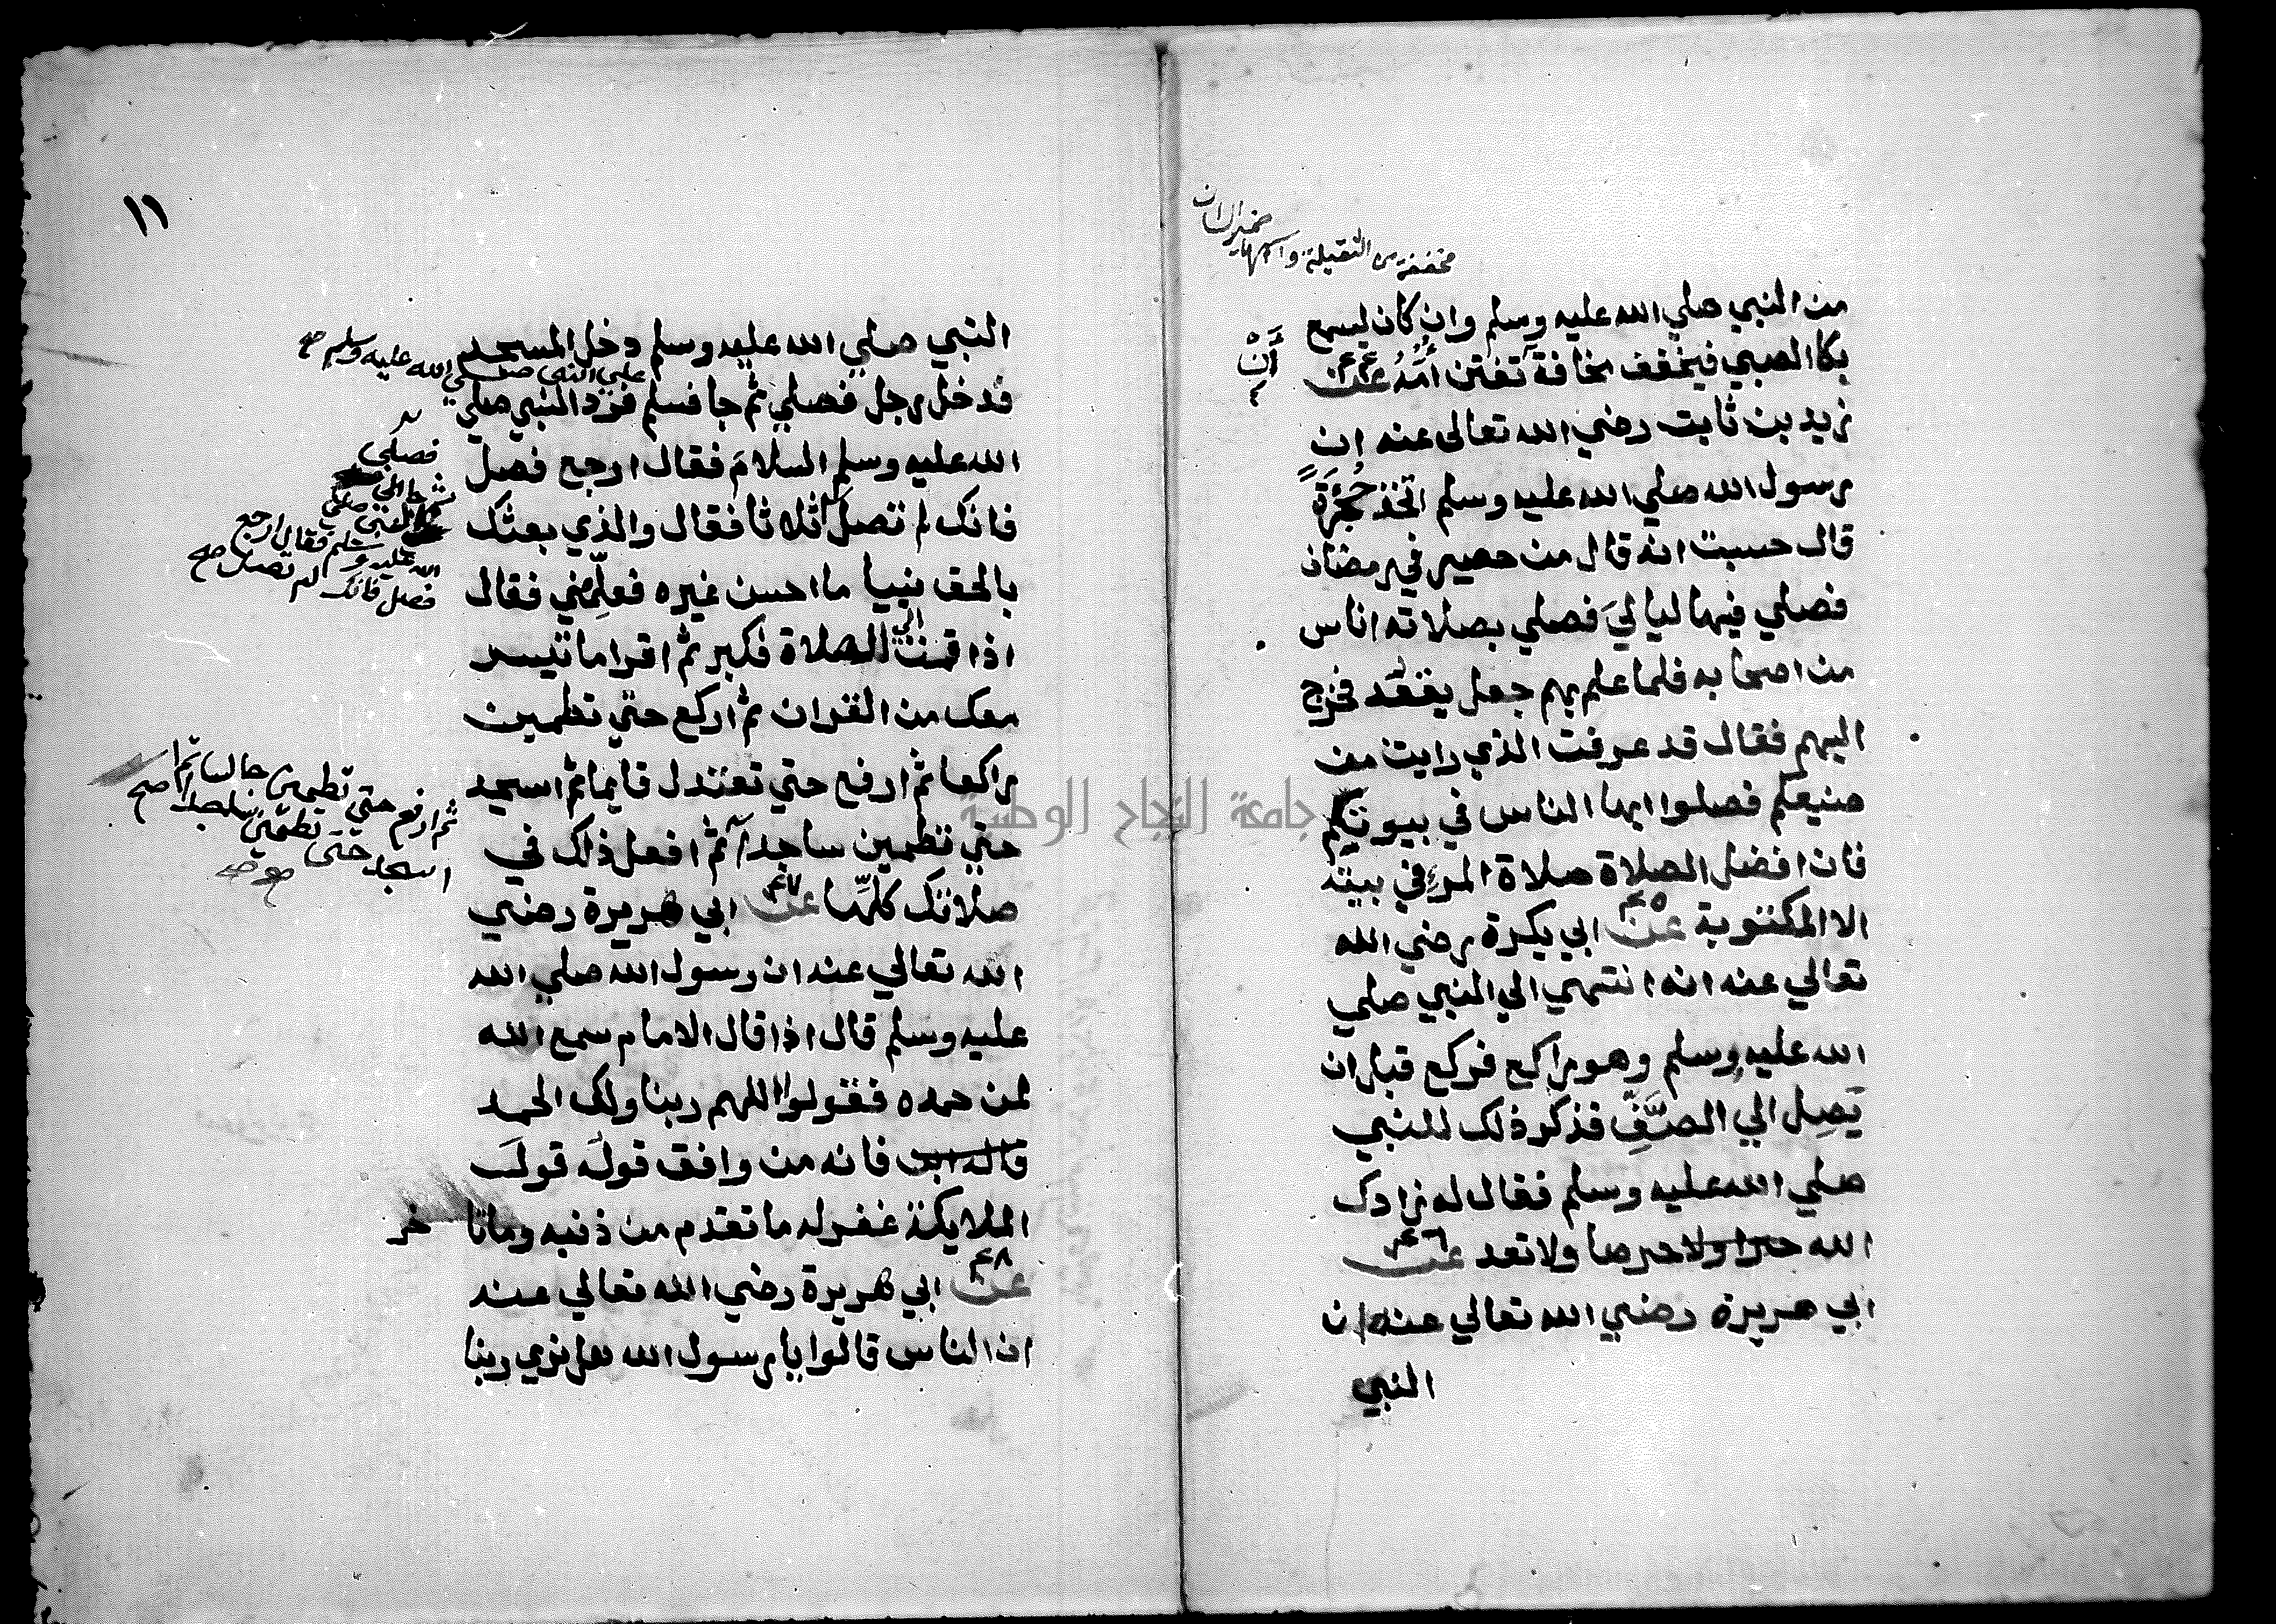 مخففة من الثقيلة واسمها ضمير الشان
من النبي صلي الله عليه وسلم وان كان ليسمع
بكا الصبي فيخفف مخافة تفتن امُّهُ عن ٤٤
أَنْ
زيد بن ثابت رضي الله تعالى عنه ان
رسول الله صلي الله عليه وسلم اتخذ حُجْرَةً
قال حسبت انه قال من حصير في رمضان
فصلي فيها لياليَ فصلي بصلاته اناس
من اصحابه فلما علم بهم جعل يقعد فخرج
اليهم فقال قد عرفت الذي رايت من
صنيعكم فصلوا ايها الناس في بيوتكم
فان افضل الصلاة صلاة المرءِ في بيته
الا المكتوبة عن ٤٥ ابي بكرة رضي الله
تعالي عنه انه انتهي الي النبي صلي
الله عليه وسلم وهو راكع فركع قبل ان
يَصِل الي الصَّفِّ فذكر ذلك للنبي
صلي الله عليه وسلم فقال له زادك
الله حرصا ولا تعد عن ٤٦
ابي هريرة رضي الله تعالي عنه ان
النبي
١١
النبي صلي الله عليه وسلم دخل المسجد
علي النبي صلي الله عليه وسلم صح
فدخل رجل فصلي ثم جا فسلم فرد النبي صلي
الله عليه وسلم السلامَ فقال ارجع فصل
فصلي
ثم جا الي
النبي صلي
الله عليه وسلم فقال ارجع
فصل فانك لم تصل صح
فانك لم تصل ثلاثا فقال والذي بعثك
بالحق نبيا ما احسن غيره فعلِّمني فقال
اذا قمت الي الصلاة فكبر ثم اقرا ما تيسر
معك من القران ثم اركع حتي تطمين
راكعا ثم ارفع حتي تعتدل قايما ثم اسجد
ثم ارفع حتي تطمين جالسا ثم
اسجد حتي تطمين ساجدا صح
حتي تطمين ساجدا ثم افعل ذلك في
صلاتك كلِّها عن ٤٧ ابي هريرة رضي
الله تعالي عنه ان رسول الله صلي الله
عليه وسلم قال اذا قال الامام سمع الله
لمن حمده فقولوا اللهم ربنا ولك الحمد
فانه من وافق قولُه قولَ
الملايكة غفر له ما تقدم من ذنبه وما تا خر
عن ٤٨ ابي هريرة رضي الله تعالي عنه
ان الناس قالوا يا رسول الله هل نري ربنا
جامعة النجاح الوطنية